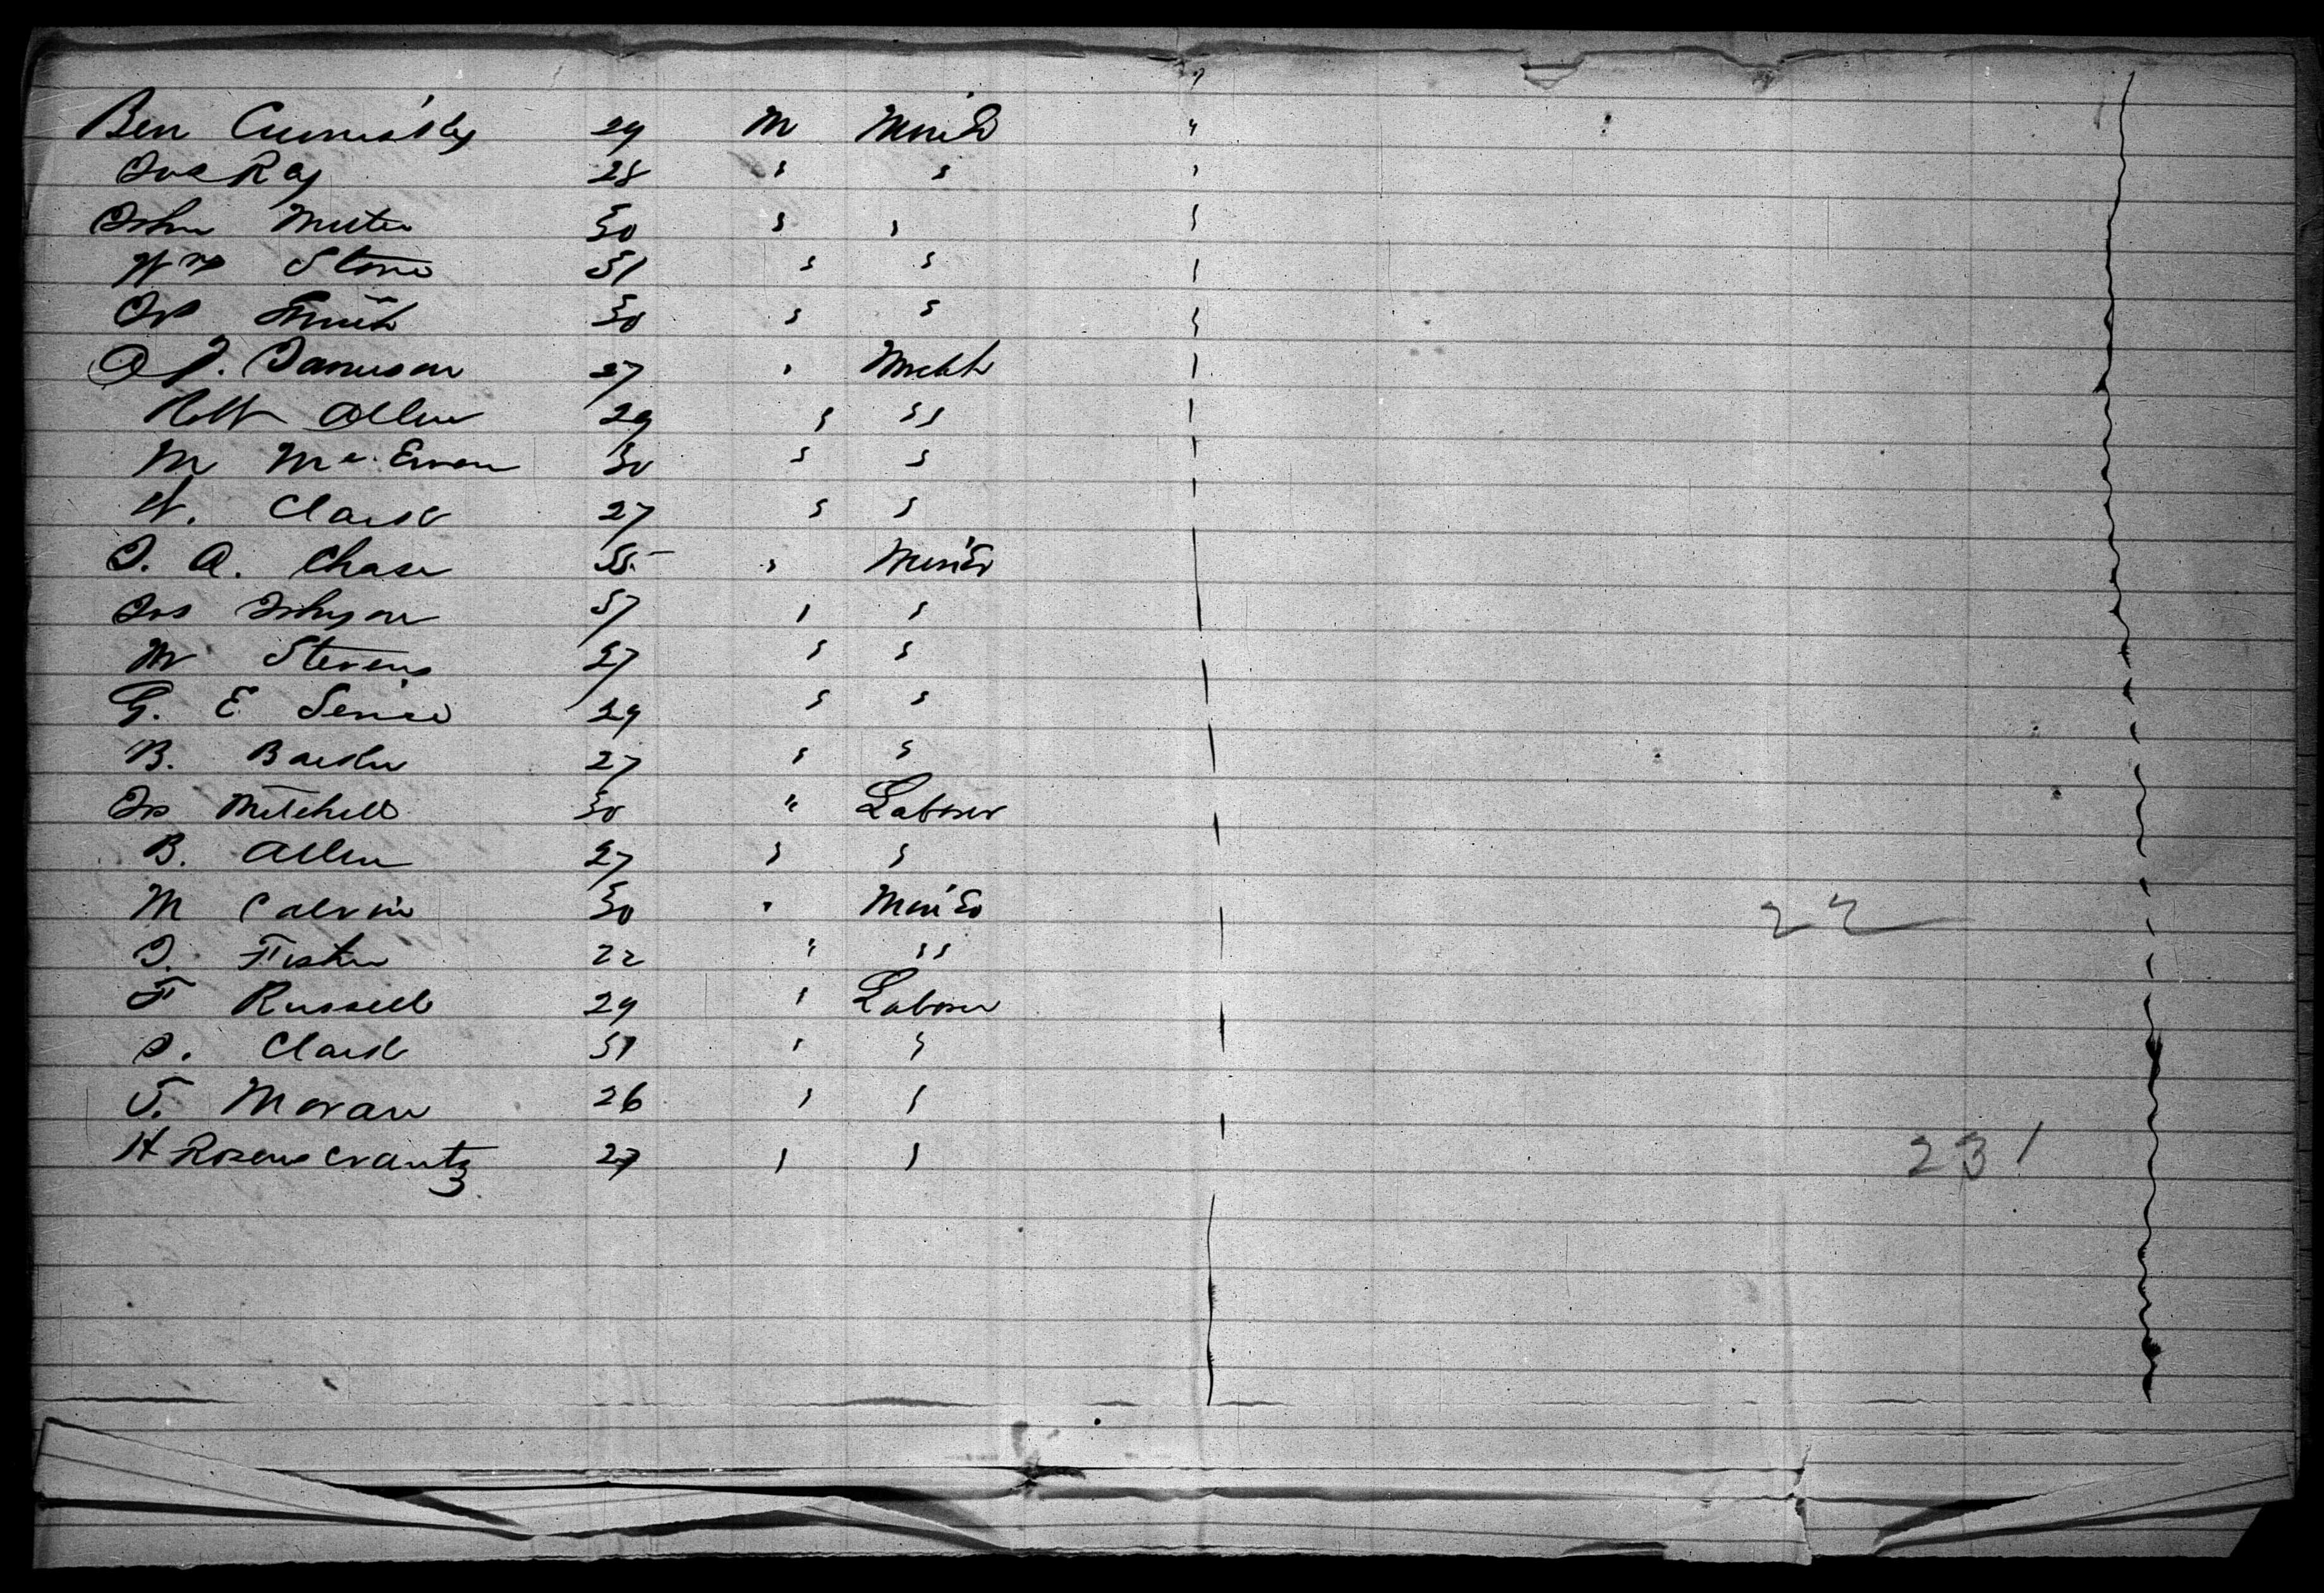 Ben 29 M Miner "
Jas Ray 28 " " "
John 30 " " "
Wm Stone 31 " " "
Jos Smith 30 " " "
J. Jamieson 27 " Mecht
Robt Allen 29 " "
M McEwan 30 " "
W. Clark 27 " "
J. A. Chase 35 " Miner
Jos Johnson 37 " "
M Stevens 27 " "
G. E 29 " "
B. Barker 27 " "
Jos Mitchell 30 " Laborer
B. Allen 27 " "
M Calvin 30 " Miner
22
J. Fisher 22 " "
F Russell 29 " Laborer
J. Clark 31 " "
T. Moran 26 " "
H Rosenscrantz 27 " "
231